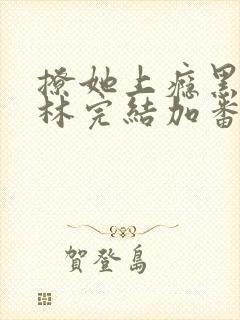 撩她上瘾黑
林完結加番
賀登島